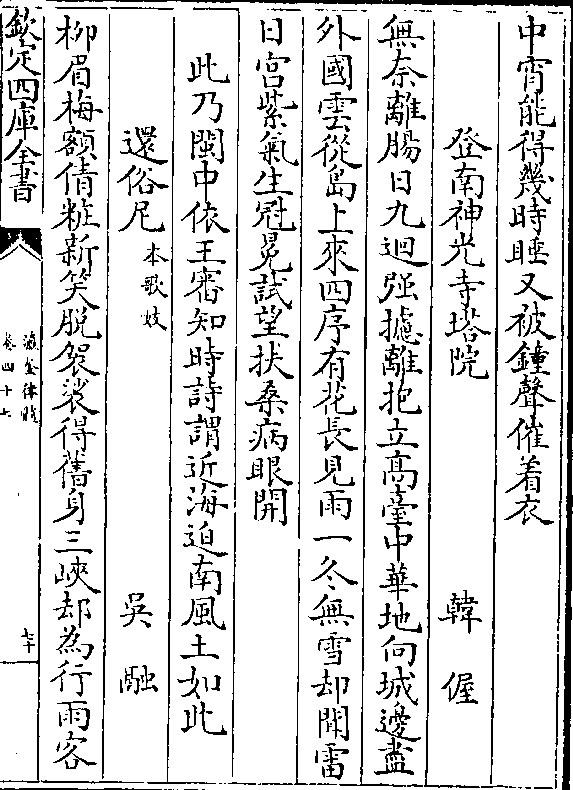 中宵能得幾時睡又被鐘聲催着衣
登南神光寺塔院　韓偓
無奈離腸日九迴强攄離抱立高臺中華地向城邊盡
外國雲從島上來四序有花長見雨一冬無雪却聞雷
日宮紫氣生冠冕試望扶桑病眼開
此乃閩中依王審知時詩謂近海迫南風土如此
還俗尼本歌妓　吳融
柳眉梅額倩粧新笑脫袈裟得舊身三峽却為行雨客
欽定四庫全書
瀛奎律髓
卷四十七
七十